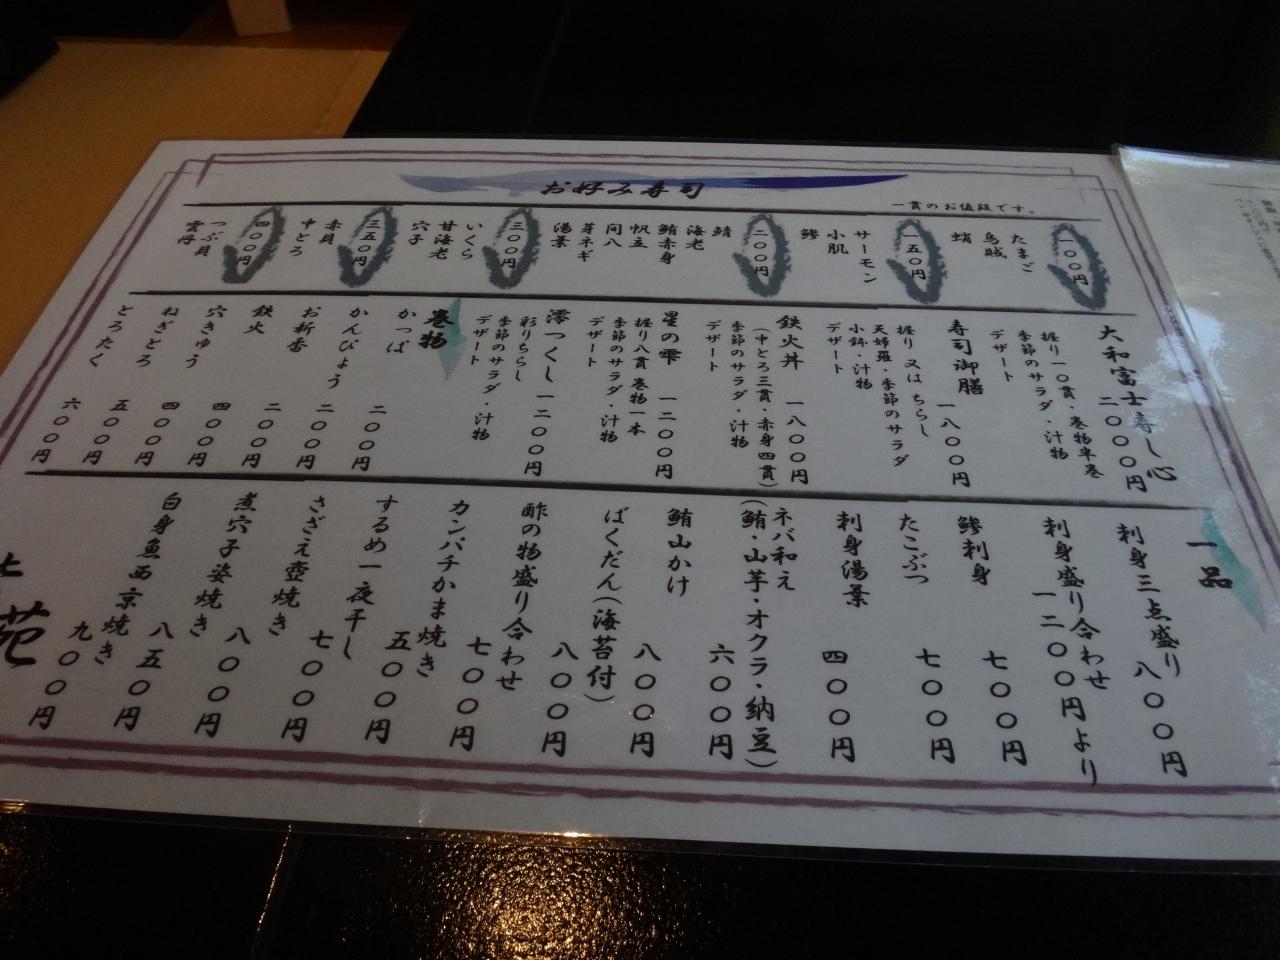 お好み寿司
一貫のお値段です。
一〇〇円
たまご
烏賊
蛸
一五〇円
サーモン
小肌
鯵
二〇〇円
鯖
海老
鮪赤身
帆立
間八
芽ネギ
湯葉
三〇〇円
いくら
甘海老
穴子
三五〇円
赤貝
中とろ
四〇〇円
つぶ貝
雲丹
大和富士寿し心
二〇〇〇円
握り一〇貫・巻物半巻
季節のサラダ・汁物
デザート
寿司御膳 一八〇〇円
握り又はちらし
天婦羅・季節のサラダ
小鉢・汁物
デザート
鉄火丼 一八〇〇円
(中とろ三貫・赤身四貫)
季節のサラダ・汁物
デザート
星の雫 一二〇〇円
握り八貫 巻物一本
季節のサラダ・汁物
デザート
澪つくし 一二〇〇円
彩りちらし
季節のサラダ・汁物
デザート
巻物
かっぱ 二〇〇円
かんぴょう 二〇〇円
お新香 二〇〇円
鉄火 四〇〇円
穴きゅう 四〇〇円
ねぎとろ 五〇〇円
とろたく 六〇〇円
一品
刺身三点盛り 八〇〇円
刺身盛り合わせ
一二〇〇円より
鯵刺身 七〇〇円
たこぶつ 七〇〇円
刺身湯葉 四〇〇円
ネバ和え
(鮪・山芋・オクラ・納豆)
六〇〇円
鮪山かけ 八〇〇円
ばくだん(海苔付)
八〇〇円
酢の物盛り合わせ
七〇〇円
カンパチかま焼き
五〇〇円
するめ一夜干し
七〇〇円
さざえ壺焼き
八〇〇円
煮穴子姿焼き
八五〇円
白身魚西京焼き
九〇〇円
苑